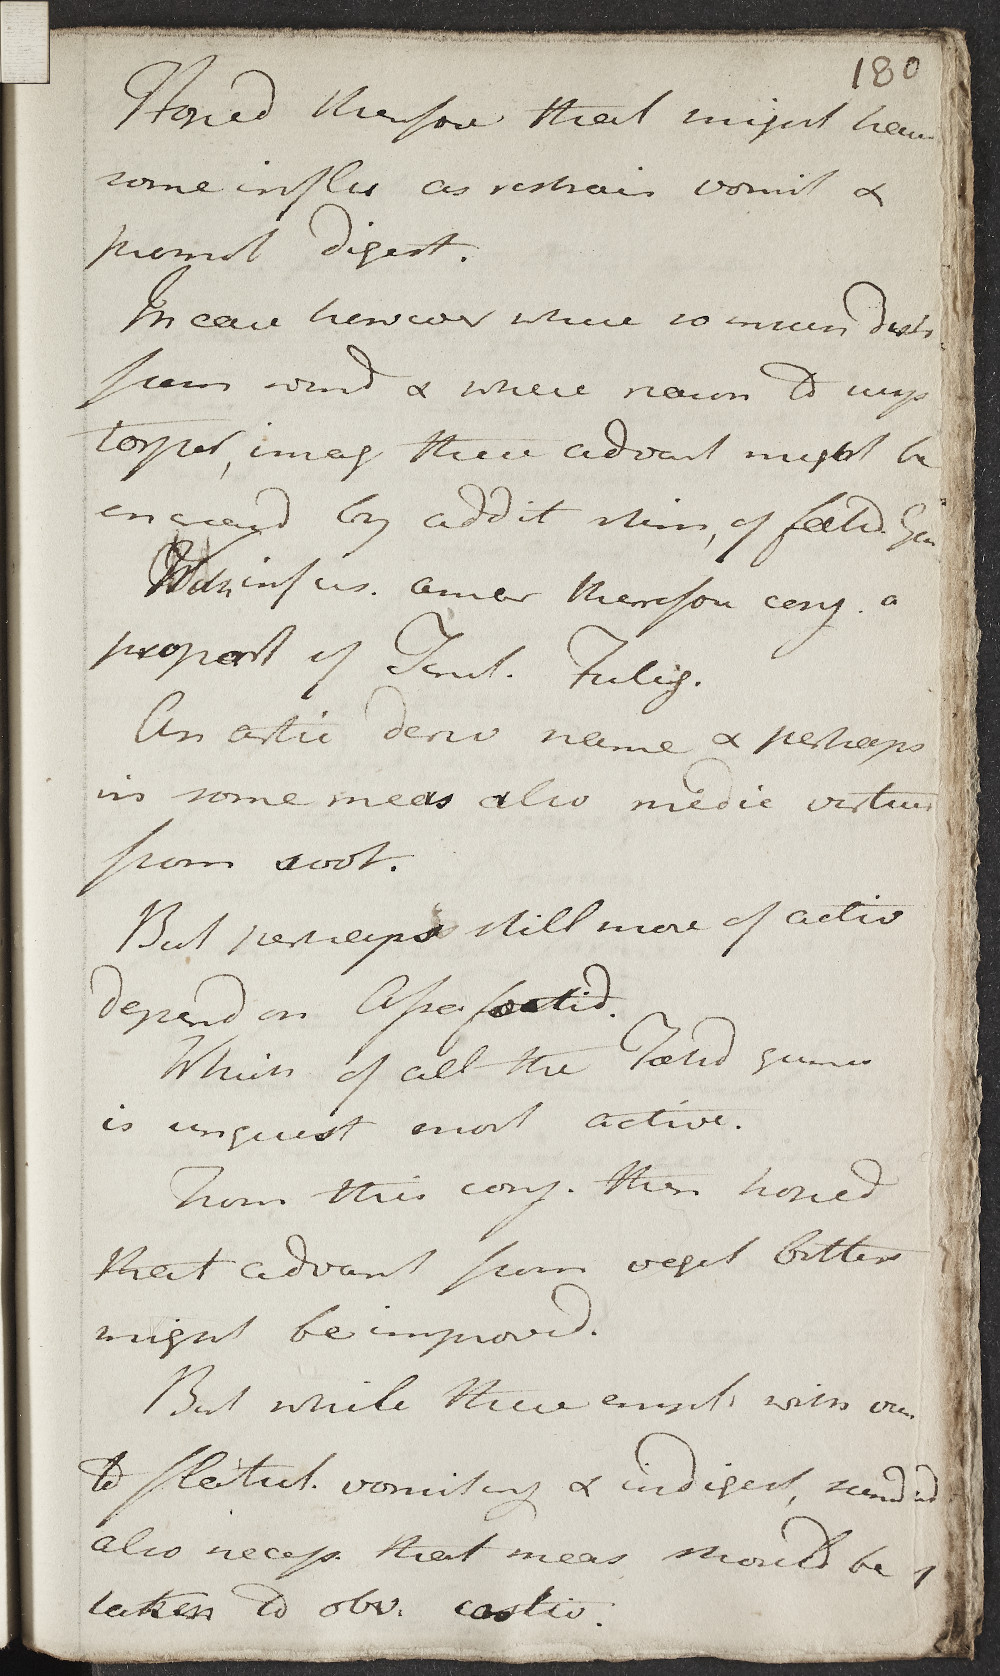 180
Hoped therefore that might have
some influ as restrain vomit &
promot digest.
In case however where so much distr
from wind & where reason to
torpor, imag these advant might be
encreasd by addit stim, of foetid Gum
With infus. amar therefore conj. a
proport of Tinct. Fulig.
An artic deriv name & perhaps
in some meas also medic virtues
from soot.
But perhaps still more of activ
depend on Assafoetid.
Which of all the Foetid gums
is unquest most active.
From this conj. then hoped
that advant from veget bitters
might be improved.
But while these empl. with view
to flatul. vomiting & indigest, rendred
also necess. that meas should be
taken to obv. costiv.